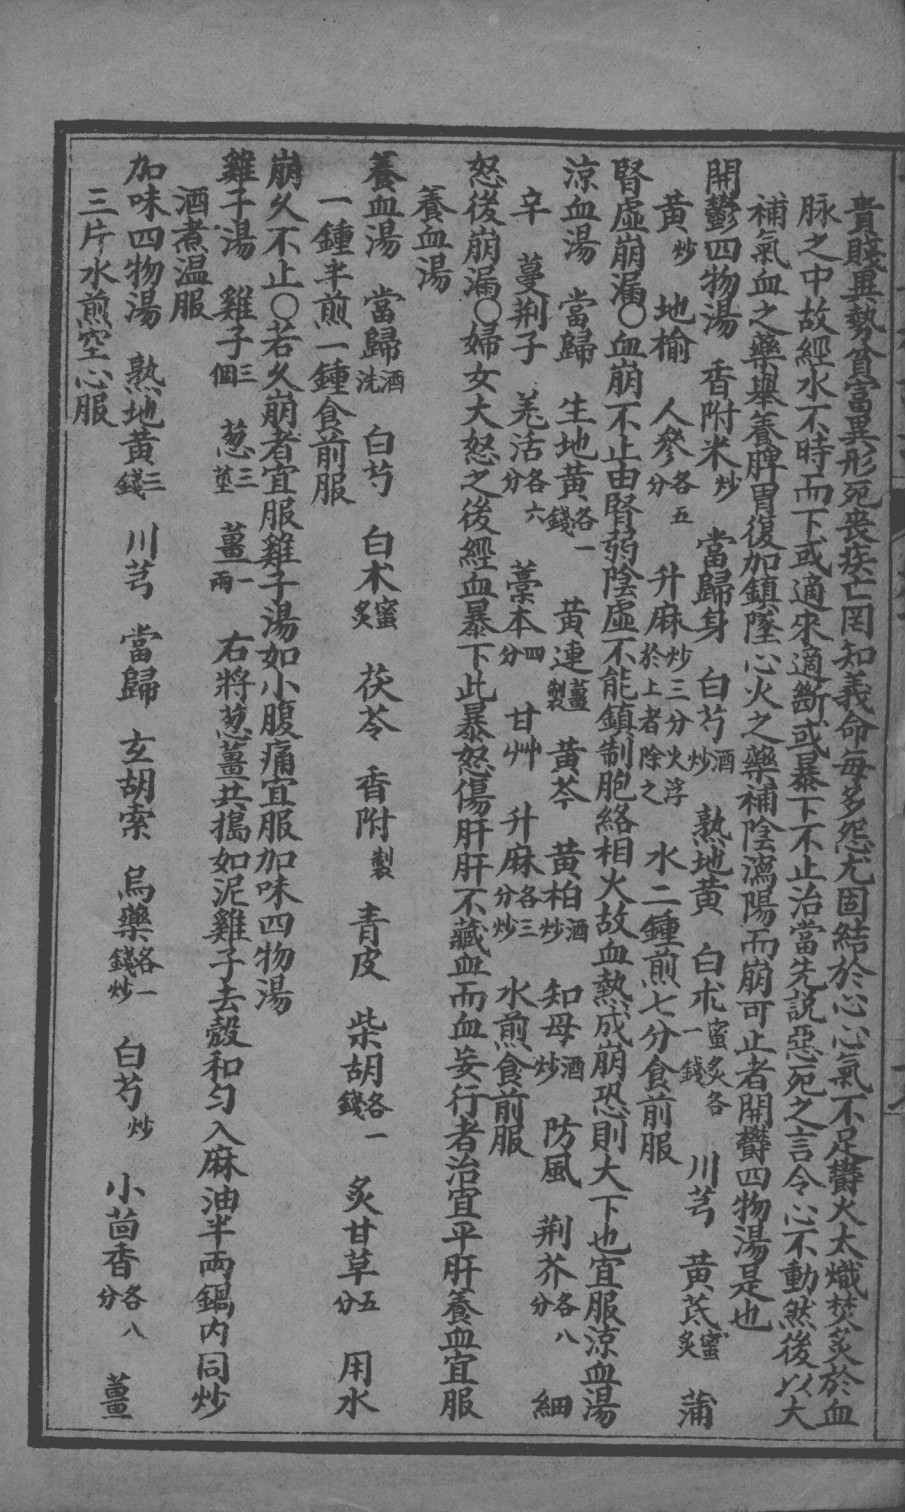 貴賤異勢貧富異形死喪疾亡罔知義命每多怨尤固結於心心氣不足欝火太熾焚炙於血
脉之中故經水不時而下或適來適斷或暴下不止治當先説惡死之言令心不動然後以大
補氣血之藥舉養脾胃復加鎮墜心火之藥補陰瀉陽而崩可止者開欝四物湯是也
開鬱四物湯 香附米炒 當歸身 白芍酒炒 熟地黄 白朮蜜炙各一錢 川芎 黄茋蜜炙 蒲
黄炒 地榆 人參各五分 升麻炒三分火浮於上者除之 水二鍾煎七分食前服
腎虛崩漏○血崩不止由腎弱陰虛不能鎮制胞絡相火故血熱成崩恐則大下也宜服凉血湯
凉血湯 當歸 生地黄各一錢 黄連薑製 黄芩 黄柏酒炒 知母酒炒 防風 荆芥各八分 細
辛 蔓荆子 羌活各六分 藁本四分 甘艸 升麻各三分炒 水煎食前服
怒後崩漏○婦女大怒之後經血暴下此暴怒傷肝肝不藏血而血妄行者治宜平肝養血宜服
養血湯
養血湯 當歸酒洗 白芍 白术蜜炙 茯苓 香附製 青皮 柴胡各一錢 炙甘草五分 用水
一鍾半煎一鍾食前服
崩久不止○若久崩者宜服雞子湯如小腹痛宜服加味四物湯
雞子湯 雞子三個 葱三莖 薑一兩 右將葱薑共搗如泥雞子去殼和匀入麻油半兩鍋内同炒
酒煮温服
加味四物湯 熟地黄三錢 川芎 當歸 玄胡索 烏藥各一錢炒 白芍炒 小茴香各八分 薑
三片水煎空心服